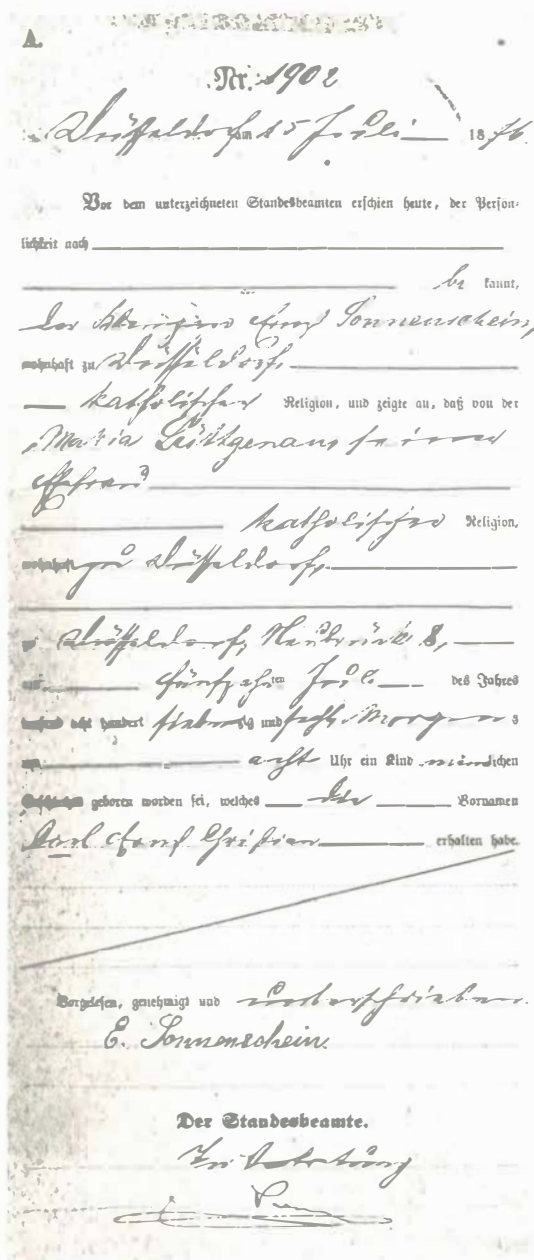 A.
Nr. 1902
Düsseldorf am 15 Juli 1876.
Vor dem unterzeichneten Standesbeamten erschien heute, der Persön-
lichkeit nach
be kannt,
der Ernst Sonnenschein,
wohnhaft zu Düsseldorf,
katholischer Religion, und zeigte an, daß von der
Maria Lüttgenau, seiner
Ehefrau
katholischer Religion,
wohnhaft zu Düsseldorf,
zu Düsseldorf, Neubrück 8,
am fünfzehnten Juli des Jahres
tausend acht hundert siebenzig und sechs Morgens
um acht Uhr ein Kind männlichen
Geschlechts geboren worden sei, welches die Vornamen
Carl Ernst Christian erhalten habe.
Vorgelesen, genehmigt und unterschrieben.
E. Sonnenschein.
Der Standesbeamte.
In Vertretung